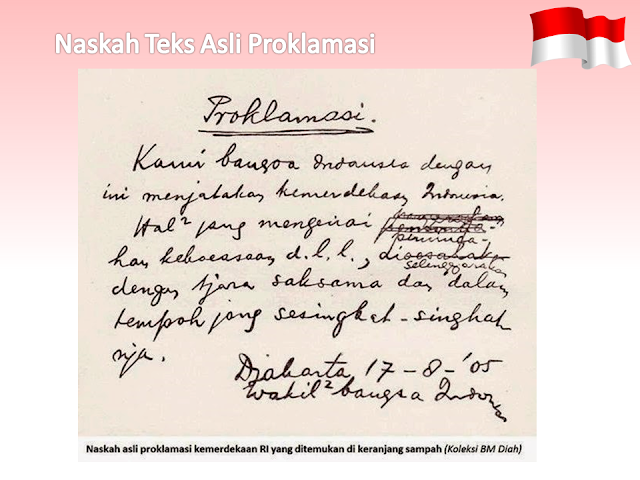 Naskah Teks Asli Proklamasi
Proklamasi.
Kami bangsa Indonesia dengan
ini menjatakan kemerdekaan Indonesia.
Hal² jang mengenai
peminda-
han kekoeasaan d.l.l., dioesahakan
selenggarakan
dengan tjara saksama dan dalam
tempoh jang sesingkat-singkat
nja.
Djakarta 17-8-'05
Wakil² bangsa Indonesia
Naskah asli proklamasi kemerdekaan RI yang ditemukan di keranjang sampah (Koleksi BM Diah)